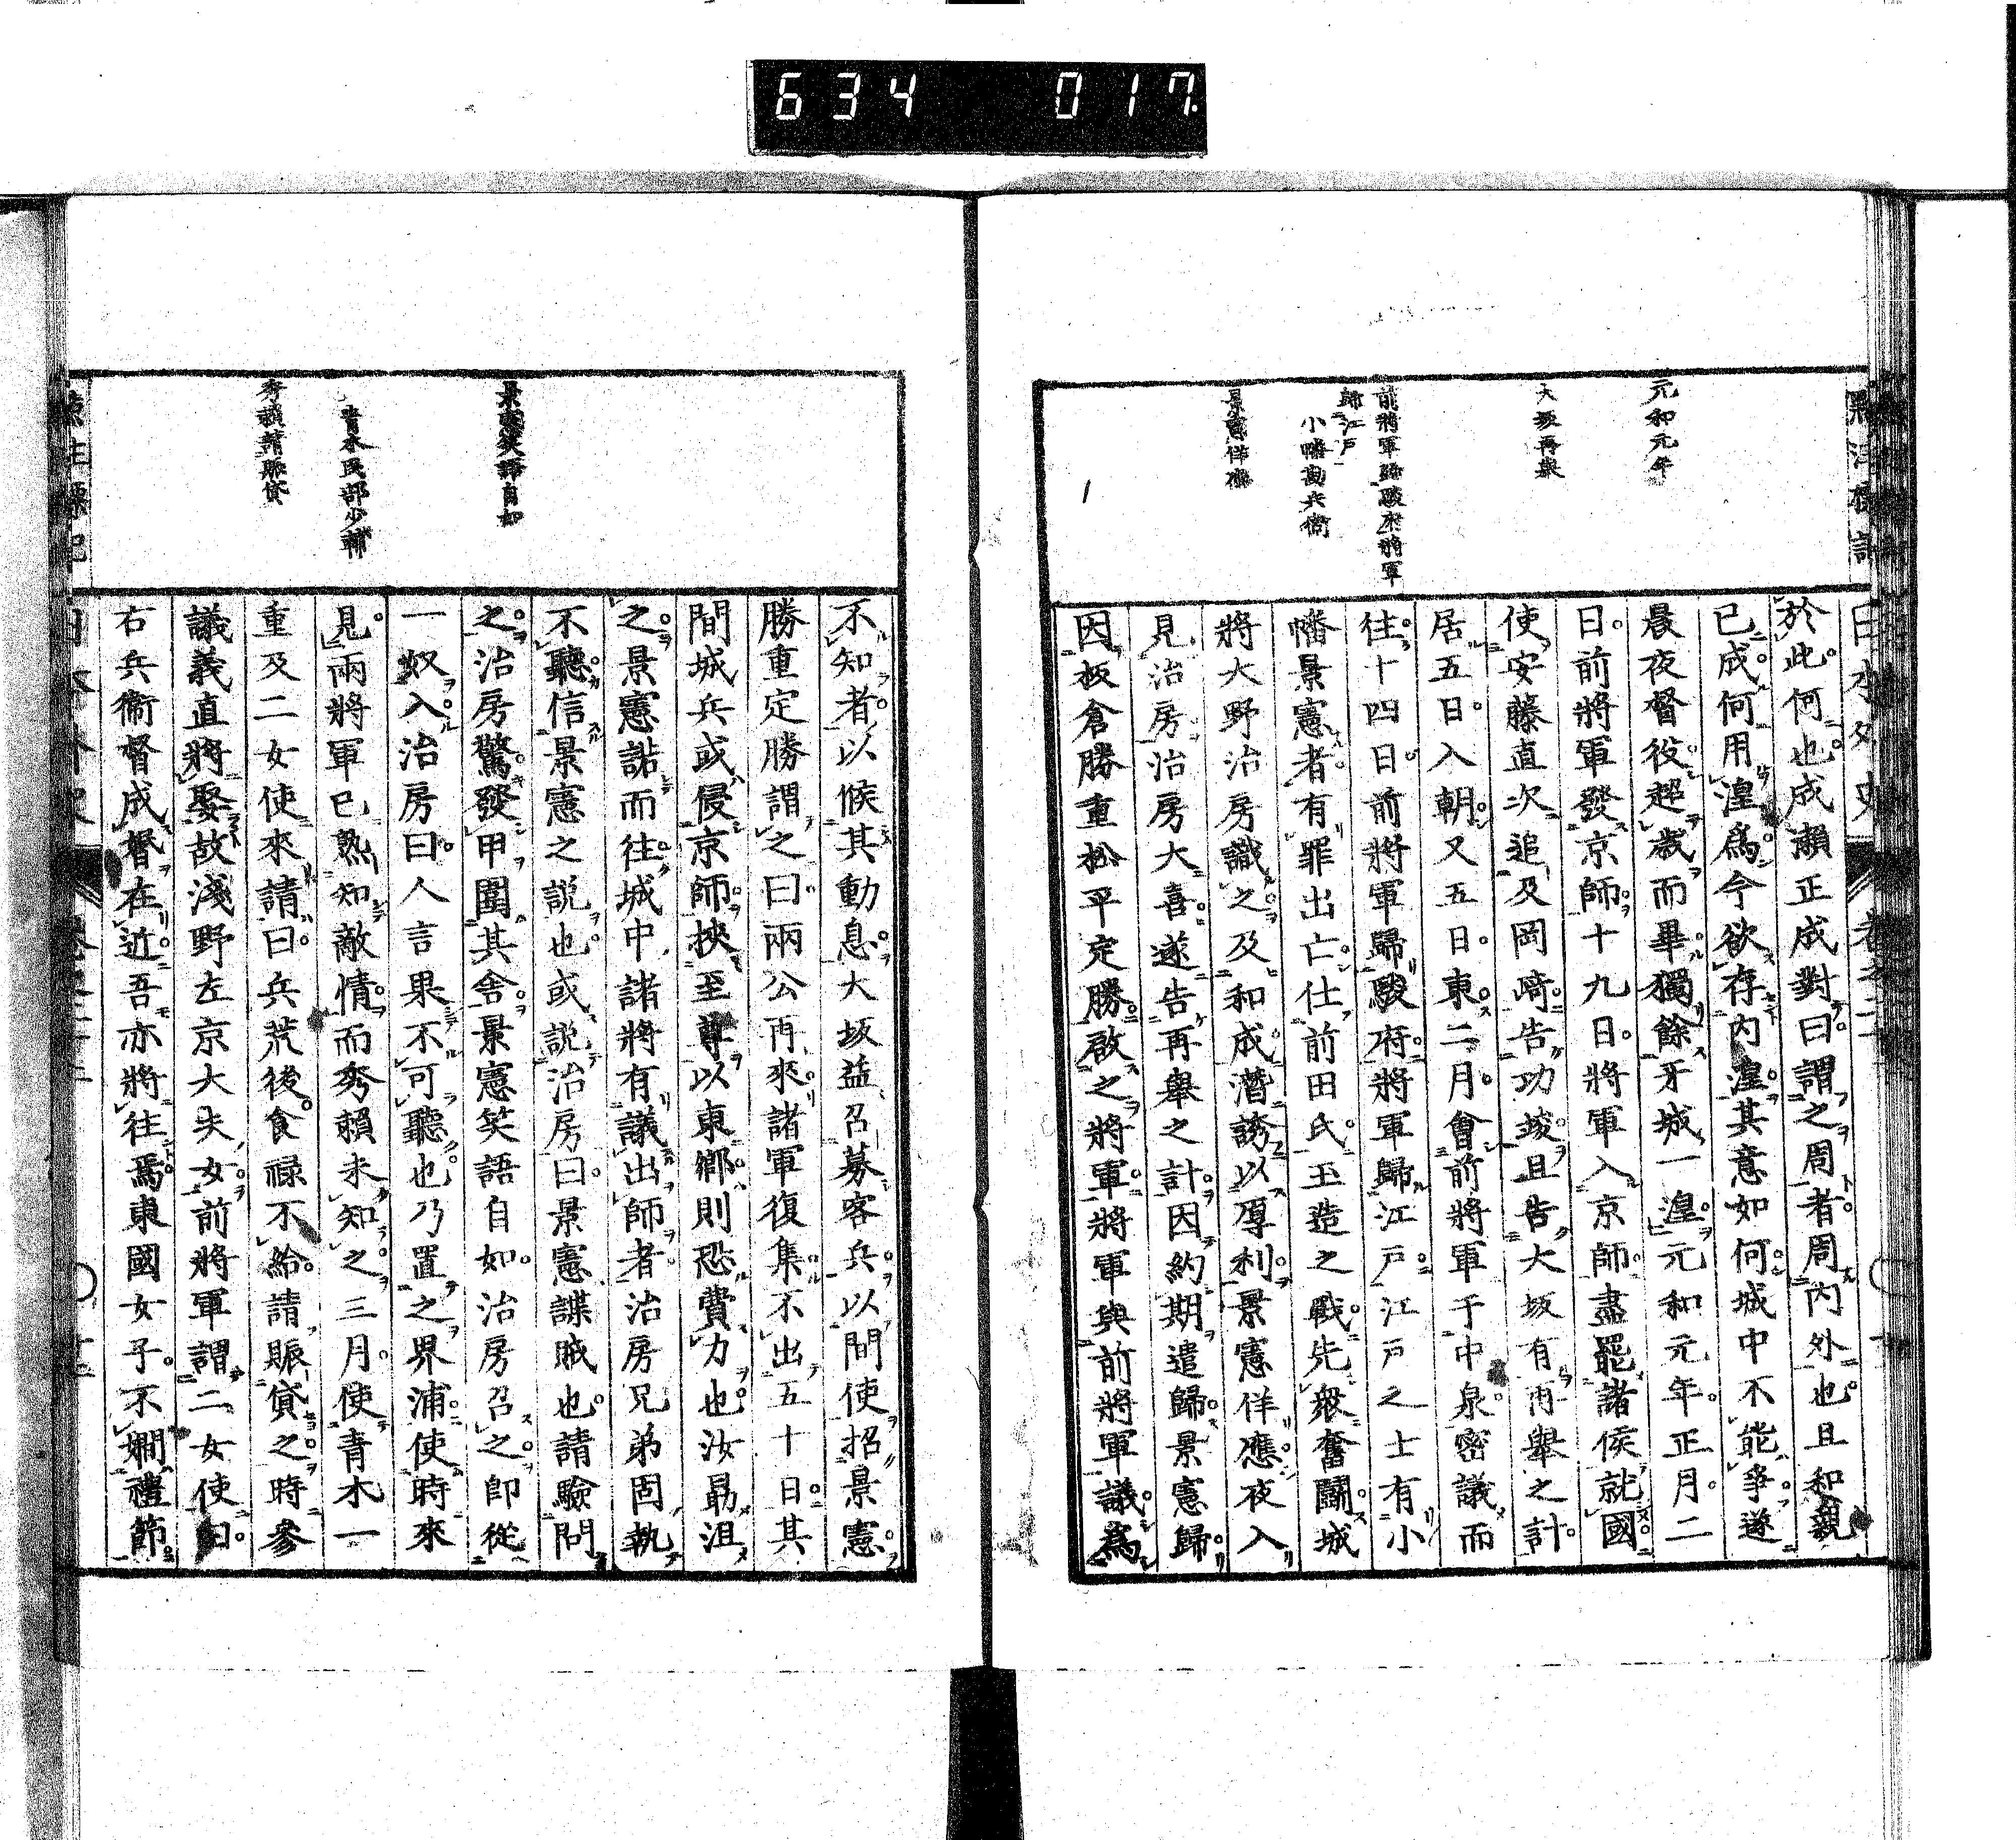 634 017
日本外史
元和元年
大坂再擧
前將軍歸駿府將軍
歸江戸
小幡勘兵衞
景憲佯應
於此何也成瀨正成對曰謂之周者周内外也且和親
已成何用湟爲今欲存内湟其意如何城中不能爭遂
晨夜督役超歳而畢獨餘牙城一湟元和元年正月二
日前將軍發京師十九日將軍入京師盡罷諸侯就國
使安藤直次追及岡﨑告功竣且告大坂有再舉之計
居五日入朝又五日東二月會前將軍于中泉密議而
往十四日前將軍歸駿府將軍歸江戸江戸之士有小
幡景憲者有罪出亡仕前田氏玉造之戰先衆奮鬪城
將大野治房識之及和成潛誘以厚利景憲佯應夜入
見治房治房大喜遂告再舉之計因約期遣歸景憲歸
因板倉勝重松平定勝啟之將軍將軍與前將軍議爲
景憲笑語自如
青木民部少輔
秀賴請賑貸
不知者以候其動息大坂益召募客兵以間使招景憲
勝重定勝謂之曰兩公再來諸軍復集不出五十日其
間城兵或侵京師挾至尊以東鄉則恐費力也汝勗沮
之景憲諾而往城中諸將有議出師者治房兄弟固執
不聽信景憲之説也或説治房曰景憲諜賊也請驗問
之治房驚發甲圍其舍景憲笑語自如治房召之卽從
一奴入治房曰人言果不可聽也乃置之界浦使時來
見兩將軍已熟知敵情而秀賴未知之三月使青木一
重及二女使來請曰兵荒後食祿不給請賑貸之時參
議義直將娶故淺野左京大夫女前將軍謂二女使曰
右兵衞督成督在近吾亦將往焉東國女子不嫻禮節